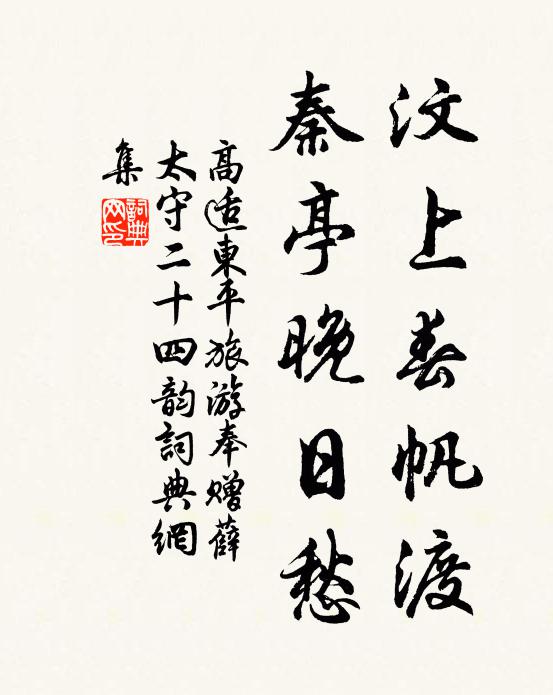 汶上春帆渡
秦亭晚日愁
高适東平旅游奉贈薛
太守二十四韵詞典網
集
詞典網印